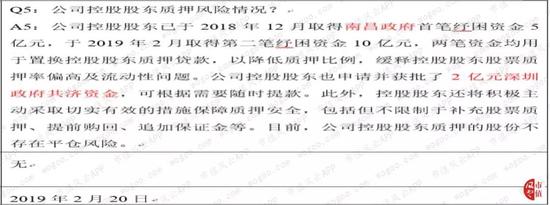 Q5：公司控股股东质押风险情况？
A5：公司控股股东已于 2018 年 12 月取得南昌政府首笔纾困资金 5
亿元，于 2019 年 2 月取得第二笔纾困资金 10 亿元，两笔资金均用
于置换控股股东质押贷款，以降低质押比例，缓释控股股东股票质
押率偏高及流动性问题。公司控股股东也申请并获批了 2 亿元深圳
政府共济资金，可根据需要随时提款。此外，控股股东还将积极主
动采取切实有效的措施保障质押安全，包括但不限制于补充股票质
押、提前购回、追加保证金等。目前，公司控股股东质押的股份不
存在平仓风险。
无
2019 年 2 月 20 日